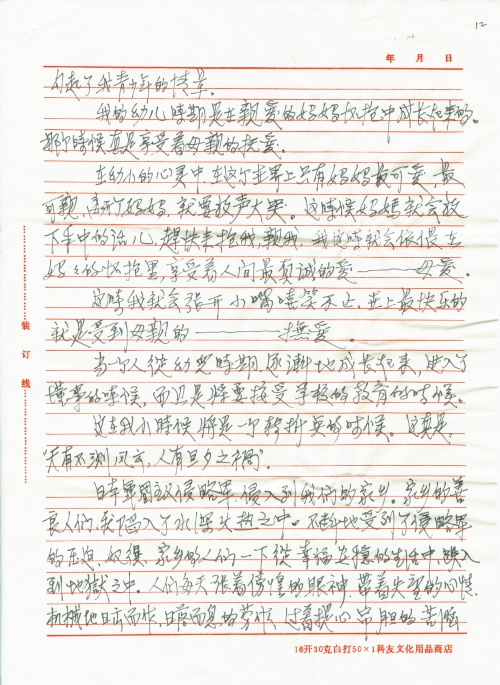 12
年 月 日
勾起了我青少年的情景。
我的幼儿時期是在親愛的妈妈怀抱中成长起來的。
那个時候真是享受着母親的抚爱。
在幼小的心灵中在这个世界上只有妈妈最可愛,最
可親,离开了妈妈,就要放声大哭。这時候妈妈就会放
下手中的活儿,趕快來抱我,親我,我这時就会依偎在
妈々的怀抱里,享受着人间最真诚的爱———母爱。
这時我就会张开小嘴嘻笑不止,世上最快乐的
就是受到母親的———撫愛。
当一个人從幼児時期,逐漸地成长起來,进入了
懂事的時候,而且是将要接受学校的教育的時候。
这在我小時候将是一个转折点的時候。这真是
“天有不測风云,人有旦夕之祸”。
日本軍國主议侵略軍,侵入到我们的家乡。家乡的善
良人们,我陷入了水深火热之中。不断地受到了侵略軍
的压迫、奴役,家乡的人们一下從幸福安穩的生活中,跌入
到地獄之中。人们每天张着傍惶的眼神,帶着失望的心情,
机械地日出而作,日落而息的劳作,过着提心吊胆的苦
装订线
16开30克白打50×1科友文化用品商店